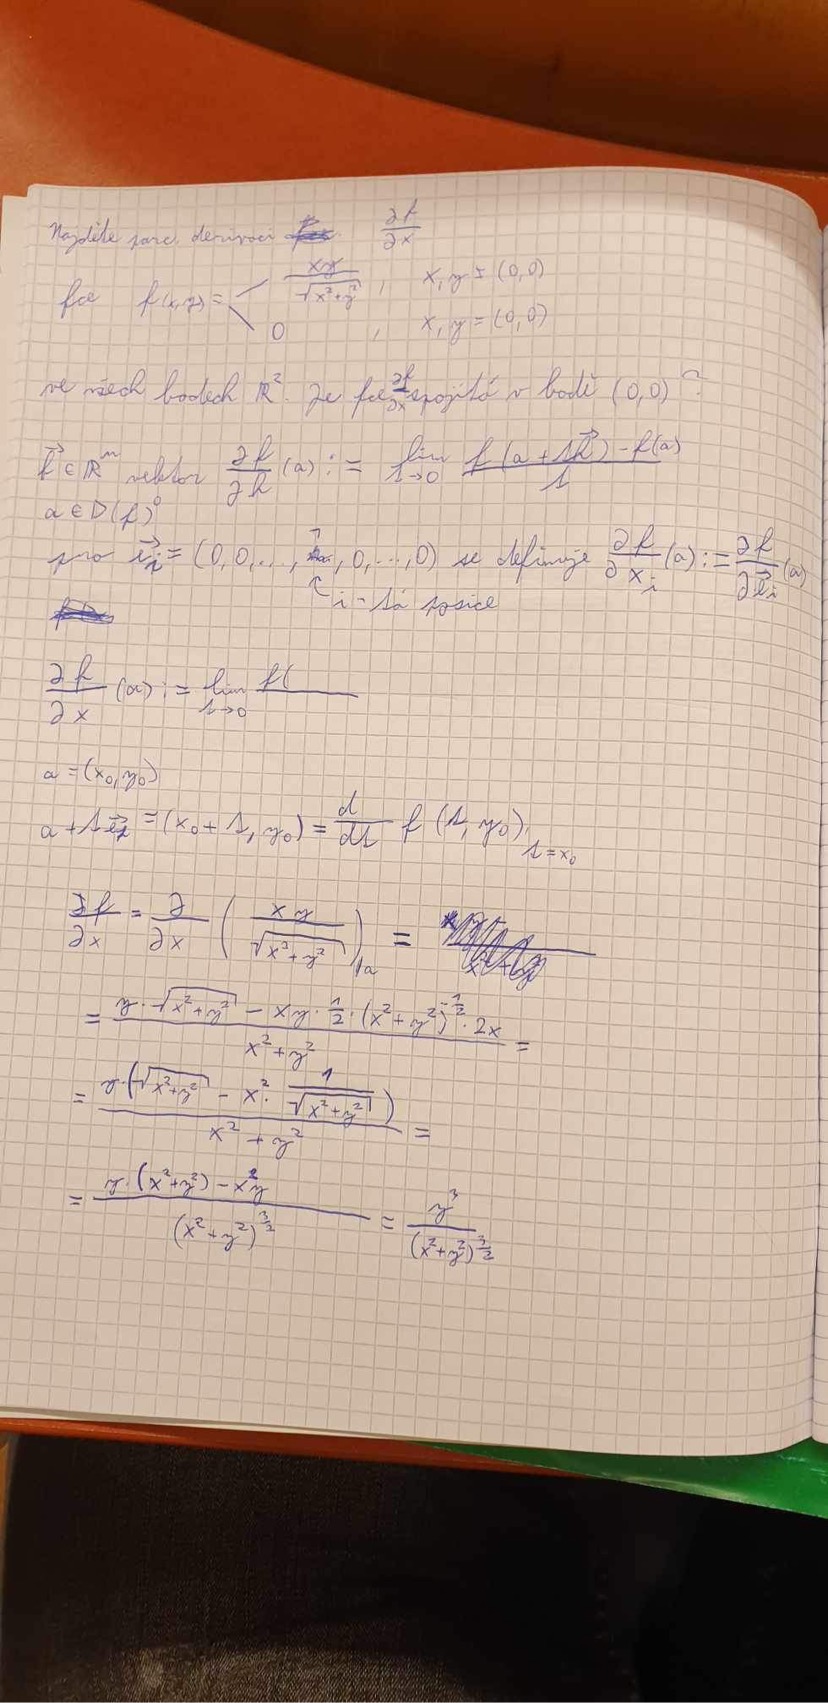 Najděte parc. derivaci ∂f/∂x
fce f(x,y) = < xy/√(x²+y²) , x,y ≠ (0,0)
0 , x,y = (0,0)
ve všech bodech ℝ². Je fce ∂f/∂x spojitá v bodě (0,0)?
h⃗ ∈ ℝⁿ vektor ∂f/∂h (a) := lim_{t→0} (f(a + t h⃗) - f(a))/t
a ∈ D(f)⁰
pro e⃗ᵢ = (0,0,...,1,0,...,0) se definuje ∂f/∂xᵢ (a) := ∂f/∂e⃗ᵢ (a)
↑ i-tá pozice
∂f/∂x (a) := lim_{t→0} f(
a = (x₀,y₀)
a + t e⃗₁ = (x₀ + t, y₀) = d/dt f (t, y₀)|_{t=x₀}
∂f/∂x = ∂/∂x ( xy/√(x²+y²) )|ₐ =
= (y · √(x²+y²) - xy · 1/2 · (x²+y²)^{-1/2} · 2x)/(x²+y²) =
= (y · (√(x²+y²) - x² · 1/√(x²+y²)))/(x²+y²) =
= (y · (x²+y²) - x²y)/(x²+y²)^{3/2} = y³/(x²+y²)^{3/2}